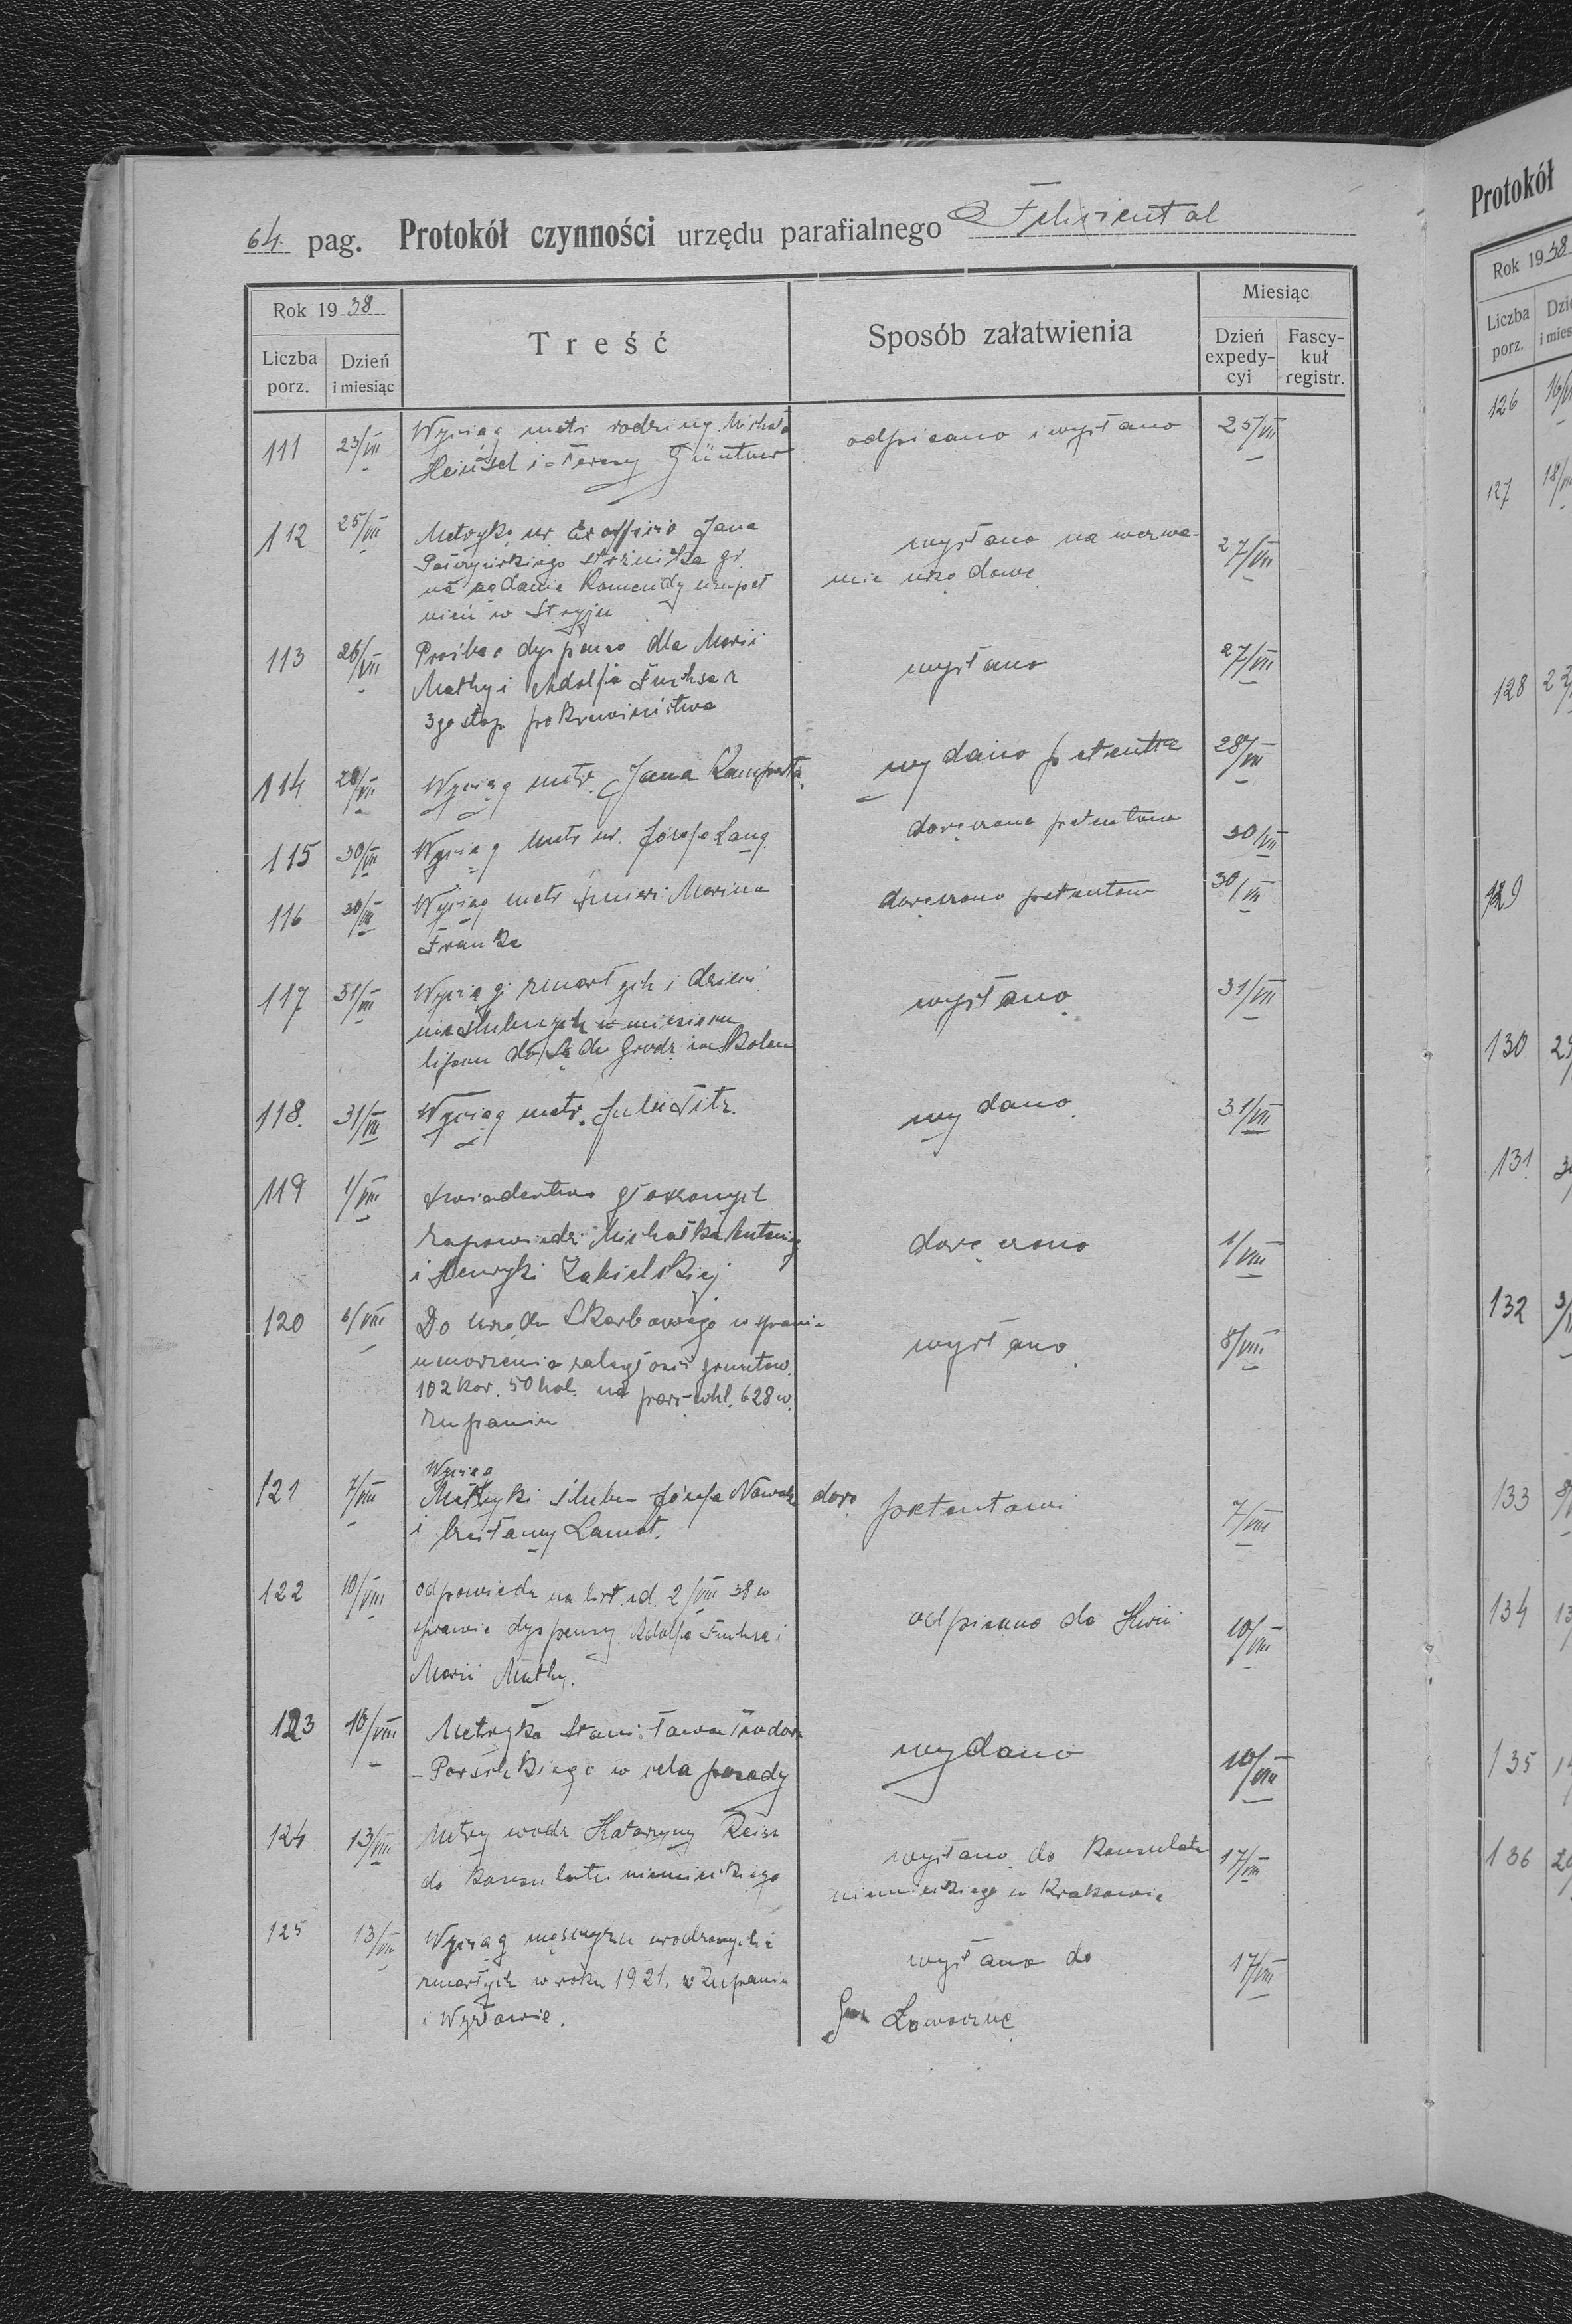 64. pag. Protokół czynności urzędu parafialnego Feliziental
Rok 1938
Treść
Sposób załatwienia
Miesiąc
Liczba porz.
Dzień i miesiąc
Dzień expedycyi
Fascykuł registr.
111 23/VII Wyciąg metr rodziny Michała odpisano i wysłano 25/VII
Heinsel i Teresy Güntner
112 25/VII Metryka ur. Ex officio Jana wysłano na wezwa- 27/VII
strażnika gr. nie urzędowe
na żądanie Komendy uzupeł
nień w Stryju
113 26/VII Prośba o dyspensę dla Marii wysłano 27/VII
Mathy i Adolfa Fuchsa z
3go stop. pokrewieństwa
114 28/VII Wyciąg metr. Jana wydano petentce 28/VII
115 30/VII Wyciąg metr ur. Józefa Lang. doręczono petentowi 30/VII
116 30/VII Wyciąg metr śmierci Marcina doręczono petentowi 30/VII
Franka
117 31/VII Wyciągi zmarłych i dzieci wysłano 31/VII
nieślubnych w miesiącu
lipcu do Sądu Grodz. w Skolem
118. 31/VII Wyciąg metr. Julii Titz. wydano 31/VII
119 1/VIII Świadectwo głoszonych
zapowiedzi Michałka Antoniego doręczono 1/VIII
i Henryki Zabielskiej
120 6/VIII Do Urzędu Skarbowego w sprawie wysłano 8/VIII
umorzenia zaległości gruntow.
102 kor. 50 hal. na parc. whl. 628 w.
Żupaniu
Wyciąg
121 7/VIII Metryki ślubu Józefa Nowak dorę petentowi 7/VIII
i Lamot.
122 10/VIII odpowiedź na list z d. 2/VIII 38 w odpisano do Kurii 10/VIII
sprawie dyspensy Adolfa Fuchsa i
Marii Mathy.
123 10/VIII Metryka Stanisława Teodora wydano 10/VIII
w cela posady
124 13/VIII Metry urodz. Katarzyny Reisz wysłano do Konsulatu 17/VIII
do Konsulatu niemieckiego niemieckiego w Krakowie
125 13/VIII Wyciąg mężczyzn urodzonych i wysłano do 17/VIII
zmarłych w roku 1921. w Żupaniu Gm Ławoczne
i Wyżłowie.
Protokół
Rok 1938
Liczba porz.
126
127
128
129
130
131
132
133
134
135
136